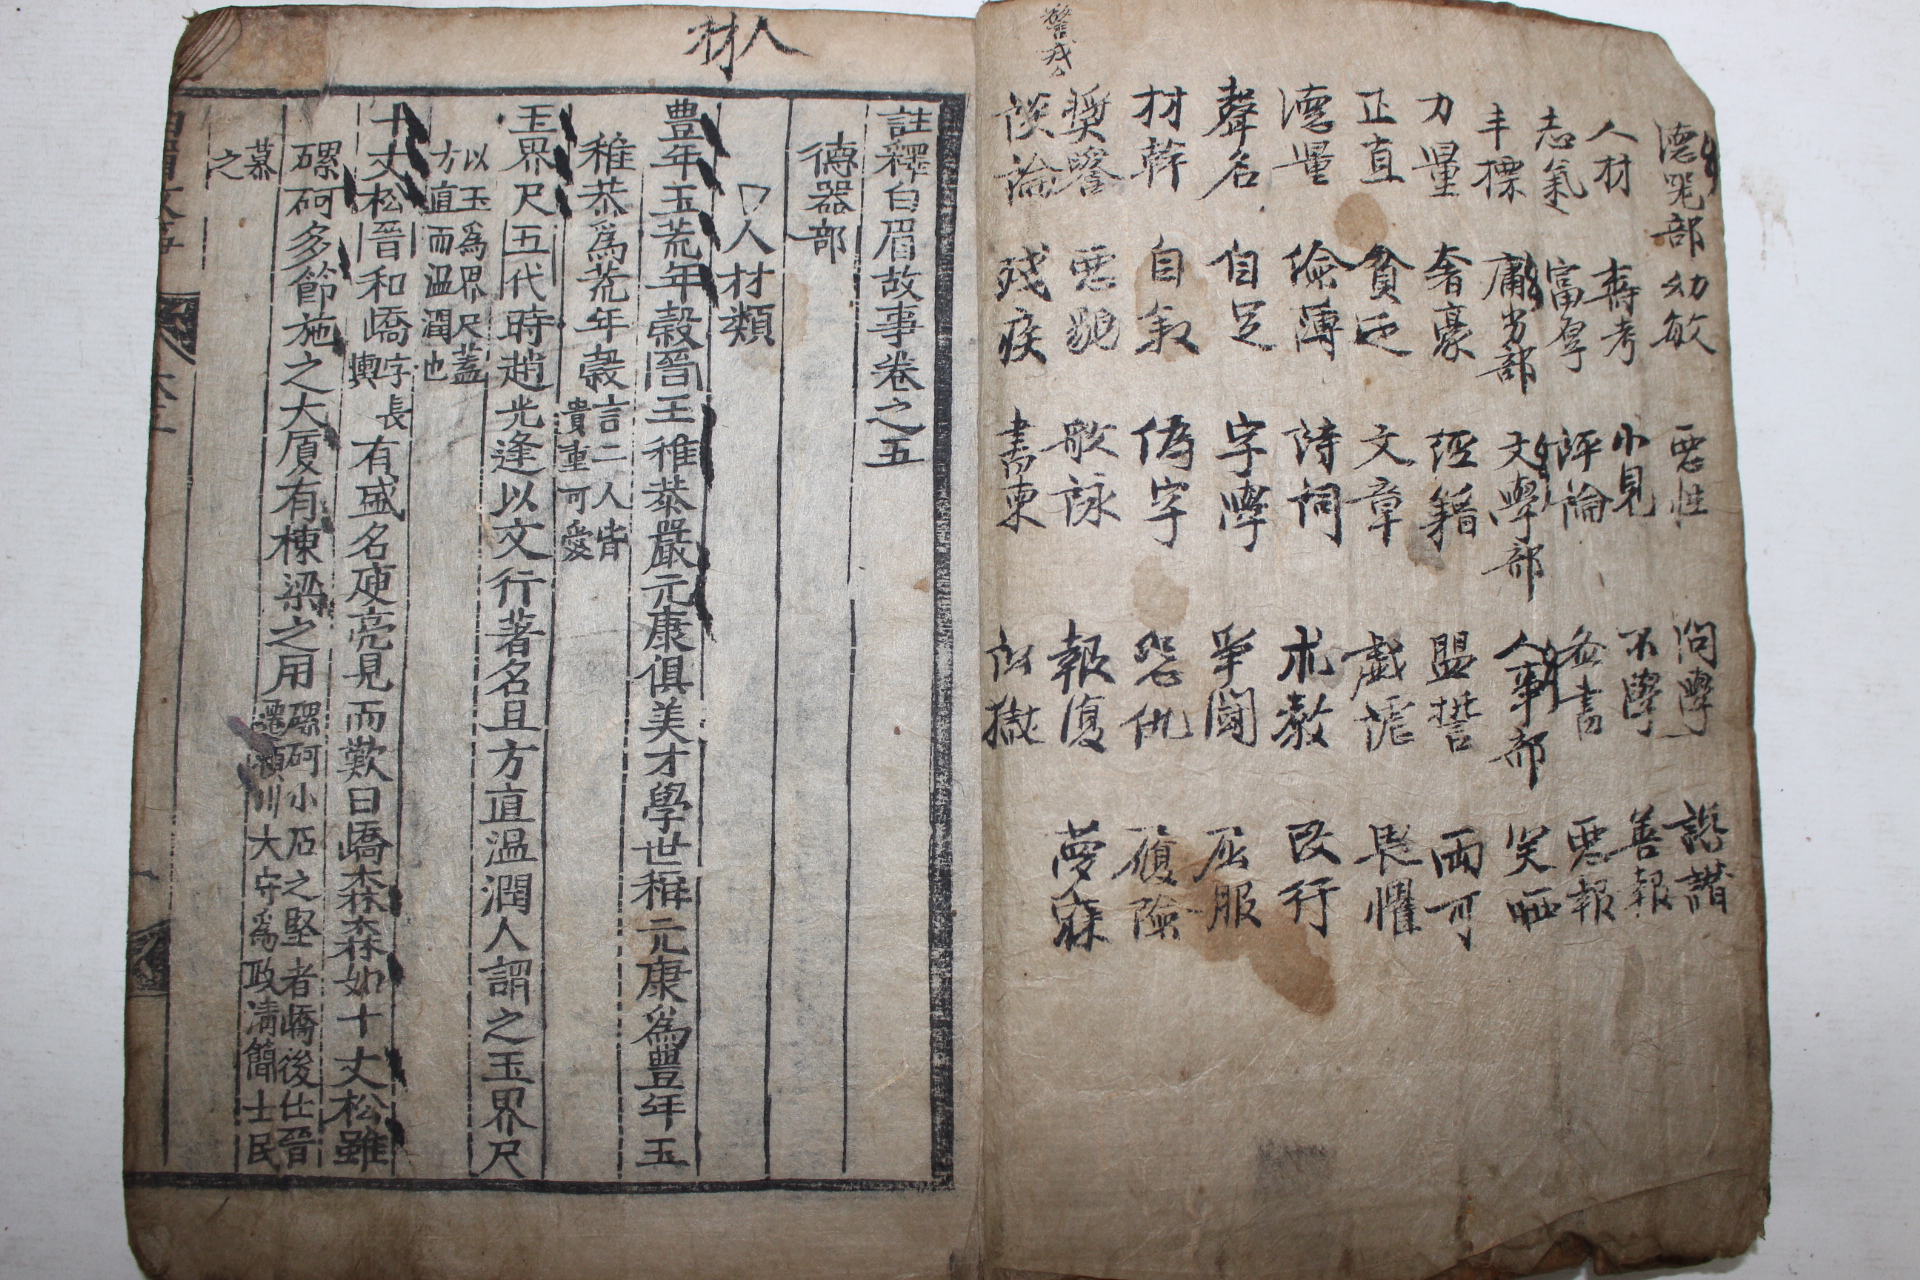 警戒
德器部 幼敏 惡性 問學 譖
人材 壽考 小見 不學 善報
志氣 富厚 評論 書 惡報
丰標 庸劣部 文學部 人事部 笑哂
力量 奢豪 經籍 盟誓 両可
正直 貧乏 文章 戱謔 畏懼
德量 儉薄 詩詞 朮數 改行
聲名 自足 字學 爭鬪 屈服
材幹 自叙 偽字 怨仇 履險
奬譽 惡貌 歌詠 報復 夢寐
談論 殘疾 書柬 獄
人材
註釋白眉故事卷之五
德器部
人材類
豊年玉荒年穀晉王稚恭嚴元康俱美才學世稱元康爲豊年玉
稚恭爲荒年穀言二人皆貴重可愛
玉界尺五代時趙光逢以文行著名且方直温潤人謂之玉界尺
以玉爲界尺蓋方直而温潤也
十丈松晉和嶠字長輿有盛名庾亮見而歎曰嶠森森如十丈松雖
磥砢多節施之大厦有棟梁之用磥砢小石之堅者嶠後仕晉遷潁川大守爲政清簡士民
慕之